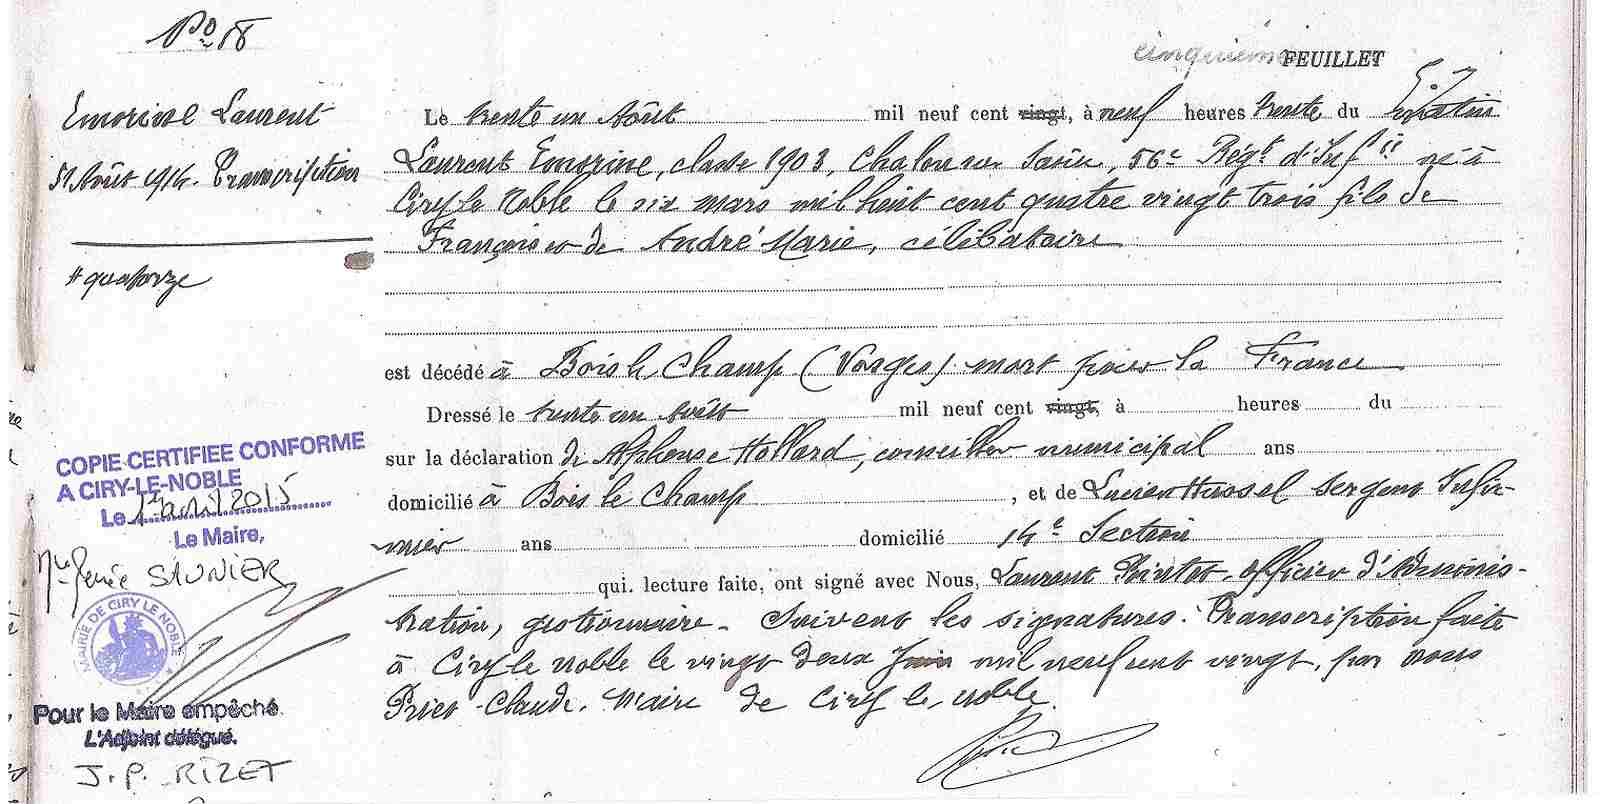 No 18
cinquième FEUILLET
57
Emorine Laurent
31 Août 1914. Transcription
# quatorze
Le trente un Août mil neuf cent vingt, à neuf heures trente du # matin
Laurent Emorine, classe 1903, Chalon sur Saône, 56e Régt d'Infie né à
Ciry le Noble le six mars mil huit cent quatre vingt trois fils de
François et de André Marie, célibataire
est décédé à Bois le Champ (Vosges) mort pour la France
Dressé le trente un Août mil neuf cent vingt, à heures du
sur la déclaration de Alphonse Hollard, conseiller municipal ans
domicilié à Bois le Champ, et de Lucien Hussel Sergent Infir-
mier ans domicilié 14e Section
qui, lecture faite, ont signé avec Nous, Laurent Pointet, officier d'Adminis-
tration, gestionnaire. Suivent les signatures. Transcription faite
à Ciry le Noble le vingt deux Juin mil neuf cent vingt, par nous
Claude. Maire de Ciry le Noble.
COPIE CERTIFIEE CONFORME
A CIRY-LE-NOBLE
Le 1er avril 2015
Le Maire,
SAUNIER
MAIRIE DE CIRY LE NOBLE
Pour le Maire empêché.
L'Adjoint délégué.
J.P. RIZET